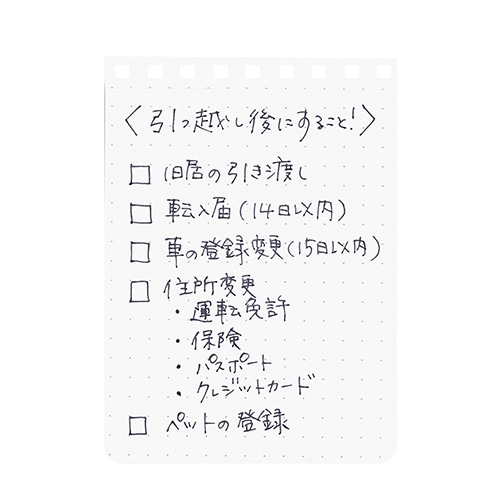 〈引っ越し後にすること!〉
□ 旧居の引き渡し
□ 転入届(14日以内)
□ 車の登録変更(15日以内)
□ 住所変更
・運転免許
・保険
・パスポート
・クレジットカード
□ ペットの登録